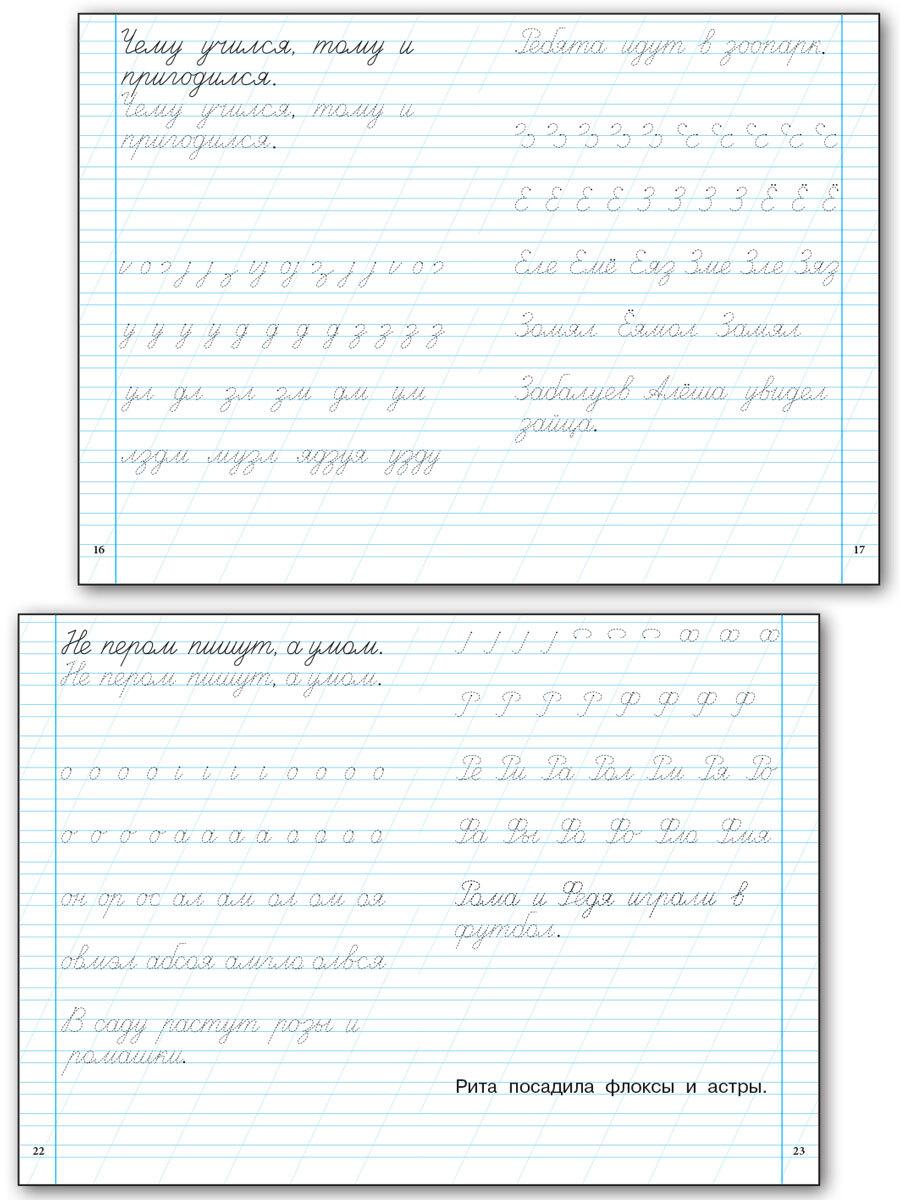 Чему учился, тому и
пригодился.
Чему учился, тому и
пригодился.
у у у у д д д д з з з з
ул дл зл зм дм ум
лздм музл ядзуя узду
16
Ребята идут в зоопарк.
Е Е Е Е З З З З Ё Ё Ё
Еле Емё Еяз Зме Зле Зяз
Зомял Ёямол Замял
Забалуев Алёша увидел
зайца.
17
Не пером пишут, а умом.
Не пером пишут, а умом.
о о о о а а а а а а а а
он ор ос ал ам ол ом оя
овмэл абсоя амгло олвся
В саду растут розы и
ромашки.
22
Р Р Р Р Ф Ф Ф Ф
Ре Ри Ра Рол Рм Ря Рю
Фа Фы Фо Фю Фло Фмя
Рома и Федя играли в
футбол.
Рита посадила флоксы и астры.
23